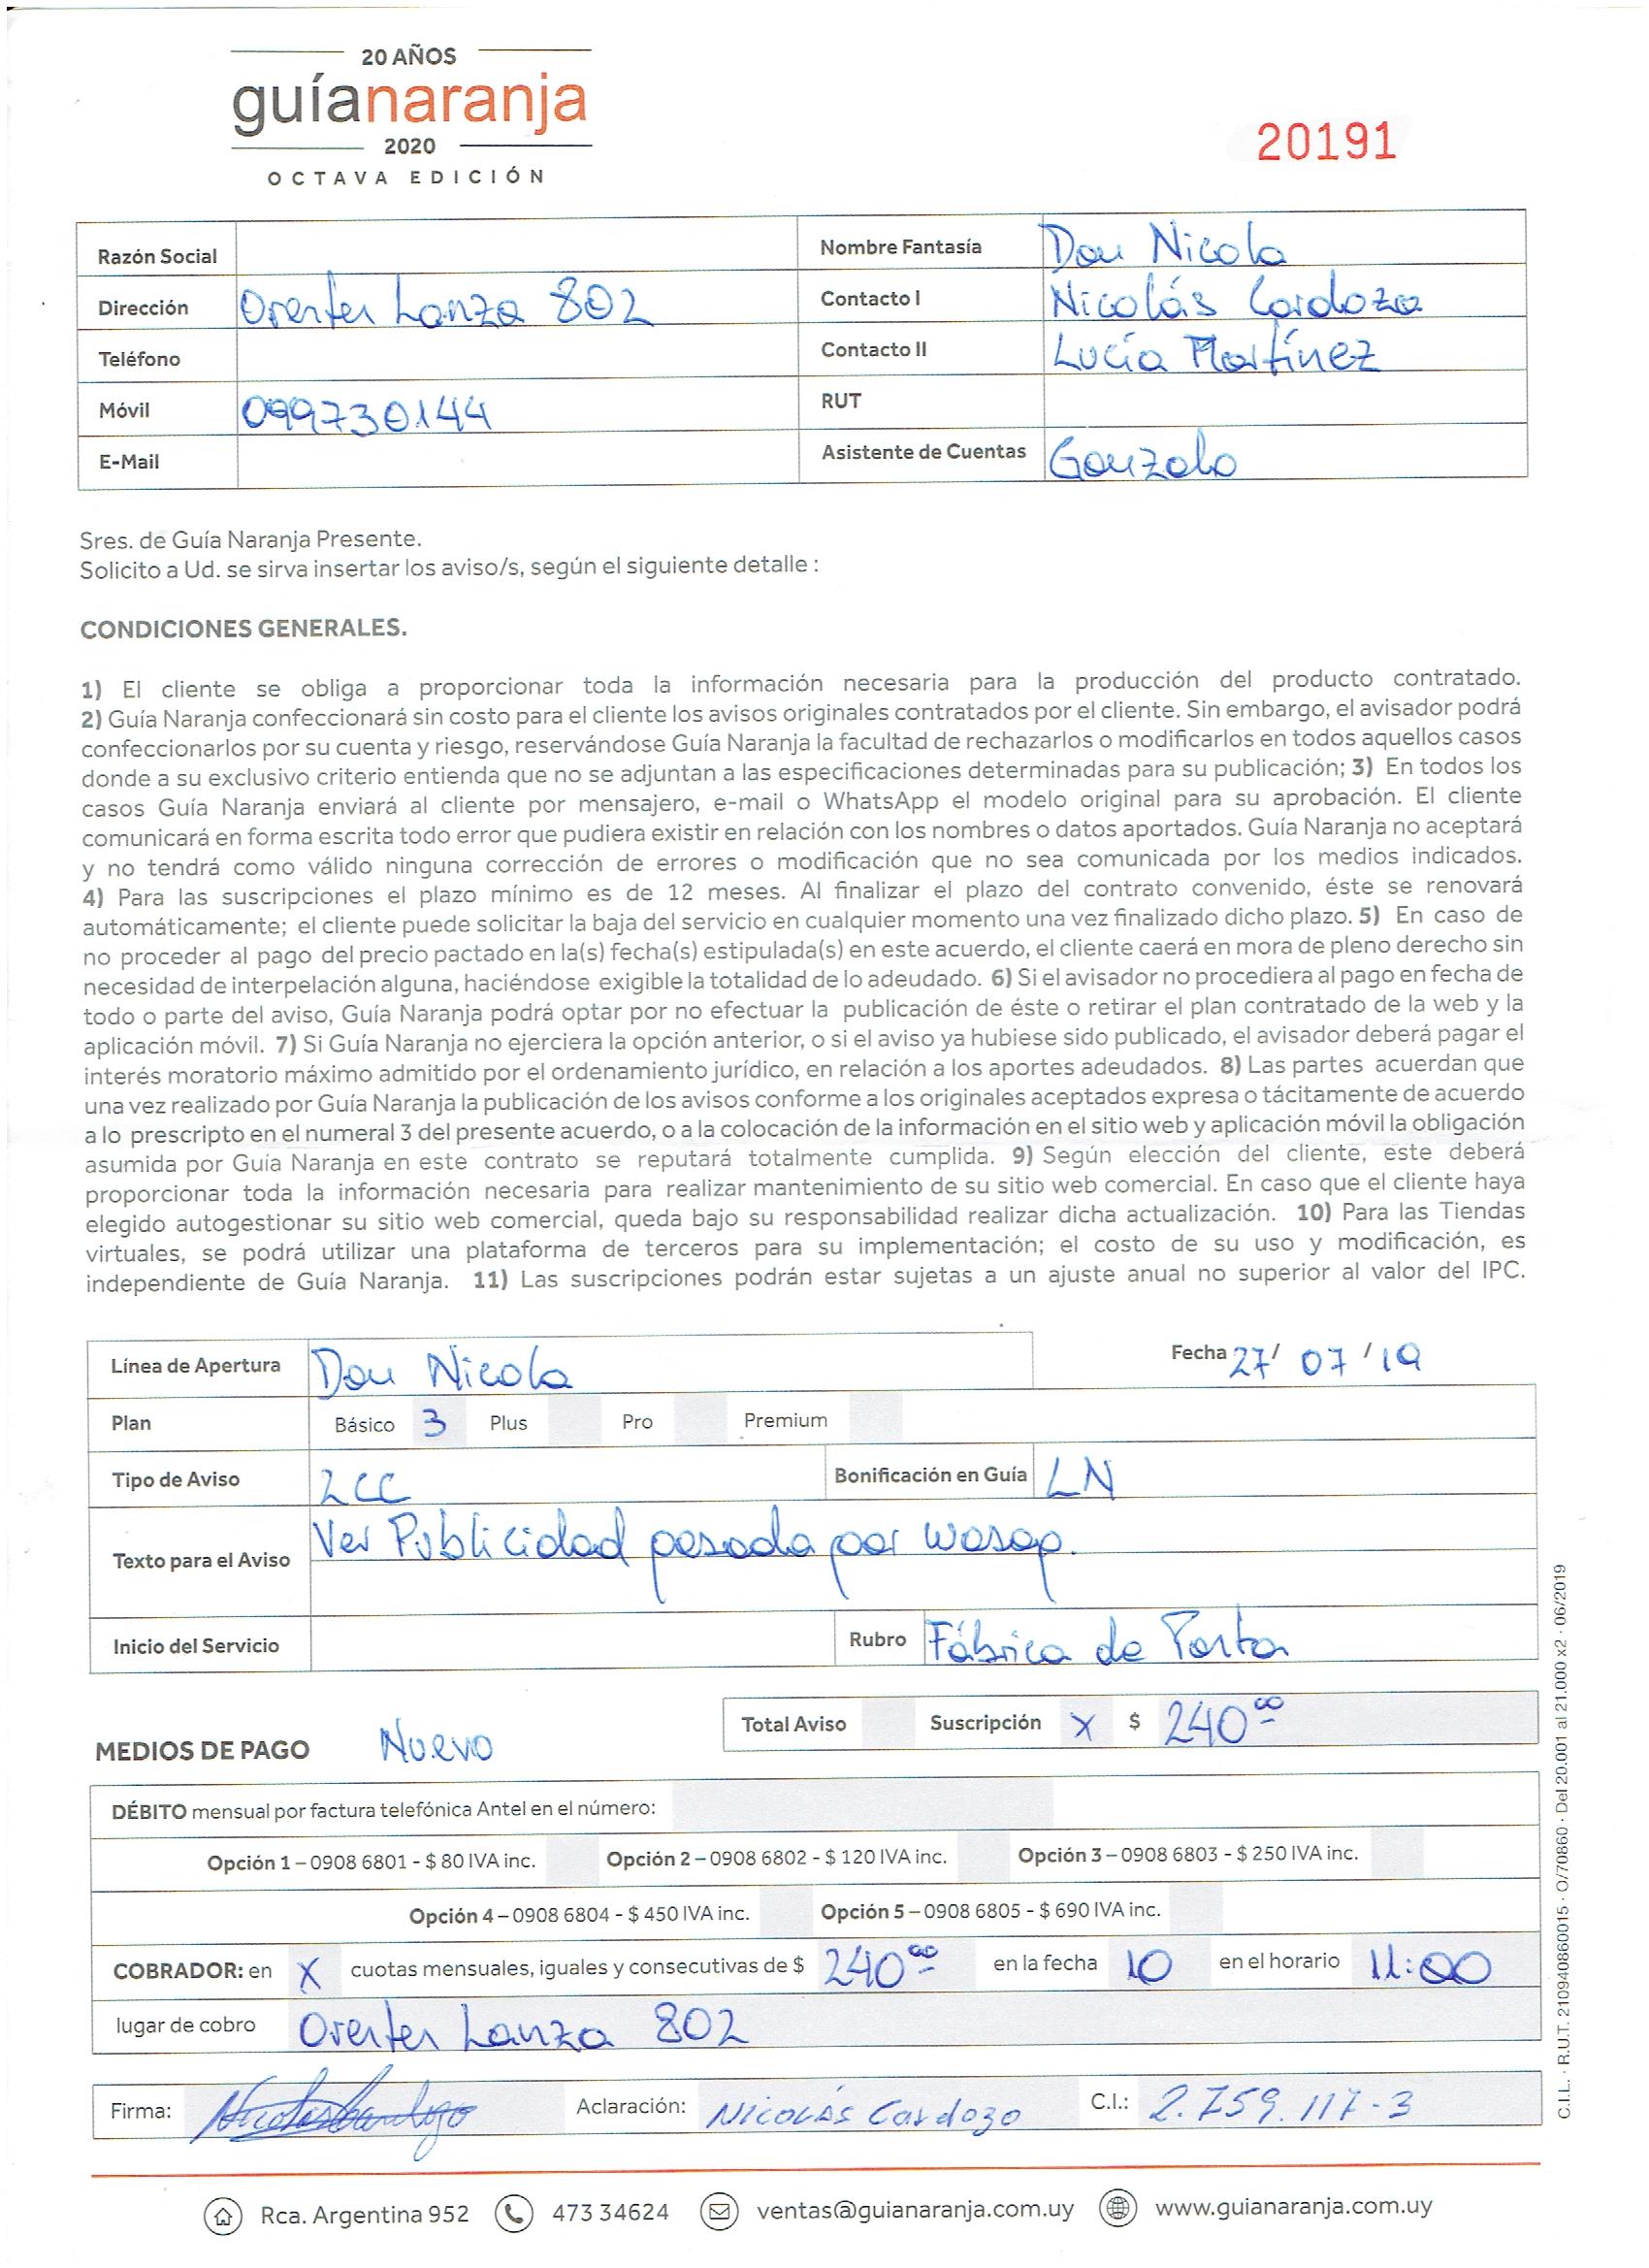 20 AÑOS
guíanaranja
2020
OCTAVA EDICIÓN
20191
Razón Social
Nombre Fantasía Don Nicola
Dirección Orester Lanza 802
Contacto I Nicolás Cardozo
Teléfono
Contacto II Lucía Martínez
Móvil 099730144
RUT
E-Mail
Asistente de Cuentas Gonzalo
Sres. de Guía Naranja Presente.
Solicito a Ud. se sirva insertar los aviso/s, según el siguiente detalle :
CONDICIONES GENERALES.
1) El cliente se obliga a proporcionar toda la información necesaria para la producción del producto contratado.
2) Guía Naranja confeccionará sin costo para el cliente los avisos originales contratados por el cliente. Sin embargo, el avisador podrá
confeccionarlos por su cuenta y riesgo, reservándose Guía Naranja la facultad de rechazarlos o modificarlos en todos aquellos casos
donde a su exclusivo criterio entienda que no se adjuntan a las especificaciones determinadas para su publicación; 3) En todos los
casos Guía Naranja enviará al cliente por mensajero, e-mail o WhatsApp el modelo original para su aprobación. El cliente
comunicará en forma escrita todo error que pudiera existir en relación con los nombres o datos aportados. Guía Naranja no aceptará
y no tendrá como válido ninguna corrección de errores o modificación que no sea comunicada por los medios indicados.
4) Para las suscripciones el plazo mínimo es de 12 meses. Al finalizar el plazo del contrato convenido, éste se renovará
automáticamente; el cliente puede solicitar la baja del servicio en cualquier momento una vez finalizado dicho plazo. 5) En caso de
no proceder al pago del precio pactado en la(s) fecha(s) estipulada(s) en este acuerdo, el cliente caerá en mora de pleno derecho sin
necesidad de interpelación alguna, haciéndose exigible la totalidad de lo adeudado. 6) Si el avisador no procediera al pago en fecha de
todo o parte del aviso, Guía Naranja podrá optar por no efectuar la publicación de éste o retirar el plan contratado de la web y la
aplicación móvil. 7) Si Guía Naranja no ejerciera la opción anterior, o si el aviso ya hubiese sido publicado, el avisador deberá pagar el
interés moratorio máximo admitido por el ordenamiento jurídico, en relación a los aportes adeudados. 8) Las partes acuerdan que
una vez realizado por Guía Naranja la publicación de los avisos conforme a los originales aceptados expresa o tácitamente de acuerdo
a lo prescripto en el numeral 3 del presente acuerdo, o a la colocación de la información en el sitio web y aplicación móvil la obligación
asumida por Guía Naranja en este contrato se reputará totalmente cumplida. 9) Según elección del cliente, éste deberá
proporcionar toda la información necesaria para realizar mantenimiento de su sitio web comercial. En caso que el cliente haya
elegido autogestionar su sitio web comercial, queda bajo su responsabilidad realizar dicha actualización. 10) Para las Tiendas
virtuales, se podrá utilizar una plataforma de terceros para su implementación; el costo de su uso y modificación, es
independiente de Guía Naranja. 11) Las suscripciones podrán estar sujetas a un ajuste anual no superior al valor del IPC.
Línea de Apertura Don Nicola
Fecha 27/ 07 /19
Plan Básico 3 Plus Pro Premium
Tipo de Aviso 2CC Bonificación en Guía LN
Texto para el Aviso Ver Publicidad pasada por wasap.
Inicio del Servicio Rubro Fábrica de Torta
Total Aviso Suscripción X $ 240 00
MEDIOS DE PAGO Nuevo
DÉBITO mensual por factura telefónica Antel en el número:
Opción 1 – 0908 6801 - $ 80 IVA inc. Opción 2 – 0908 6802 - $ 120 IVA inc. Opción 3 – 0908 6803 - $ 250 IVA inc.
Opción 4 – 0908 6804 - $ 450 IVA inc. Opción 5 – 0908 6805 - $ 690 IVA inc.
COBRADOR: en X cuotas mensuales, iguales y consecutivas de $ 240 00 en la fecha 10 en el horario 11:00
lugar de cobro Orester Lanza 802
Firma: Aclaración: Nicolás Cardozo C.I.: 2.759.117-3
Rca. Argentina 952 473 34624 ventas@guianaranja.com.uy www.guianaranja.com.uy
C.I.L. · R.U.T. 210940860015 · O/70860 · Del 20.001 al 21.000 x2 · 06/2019